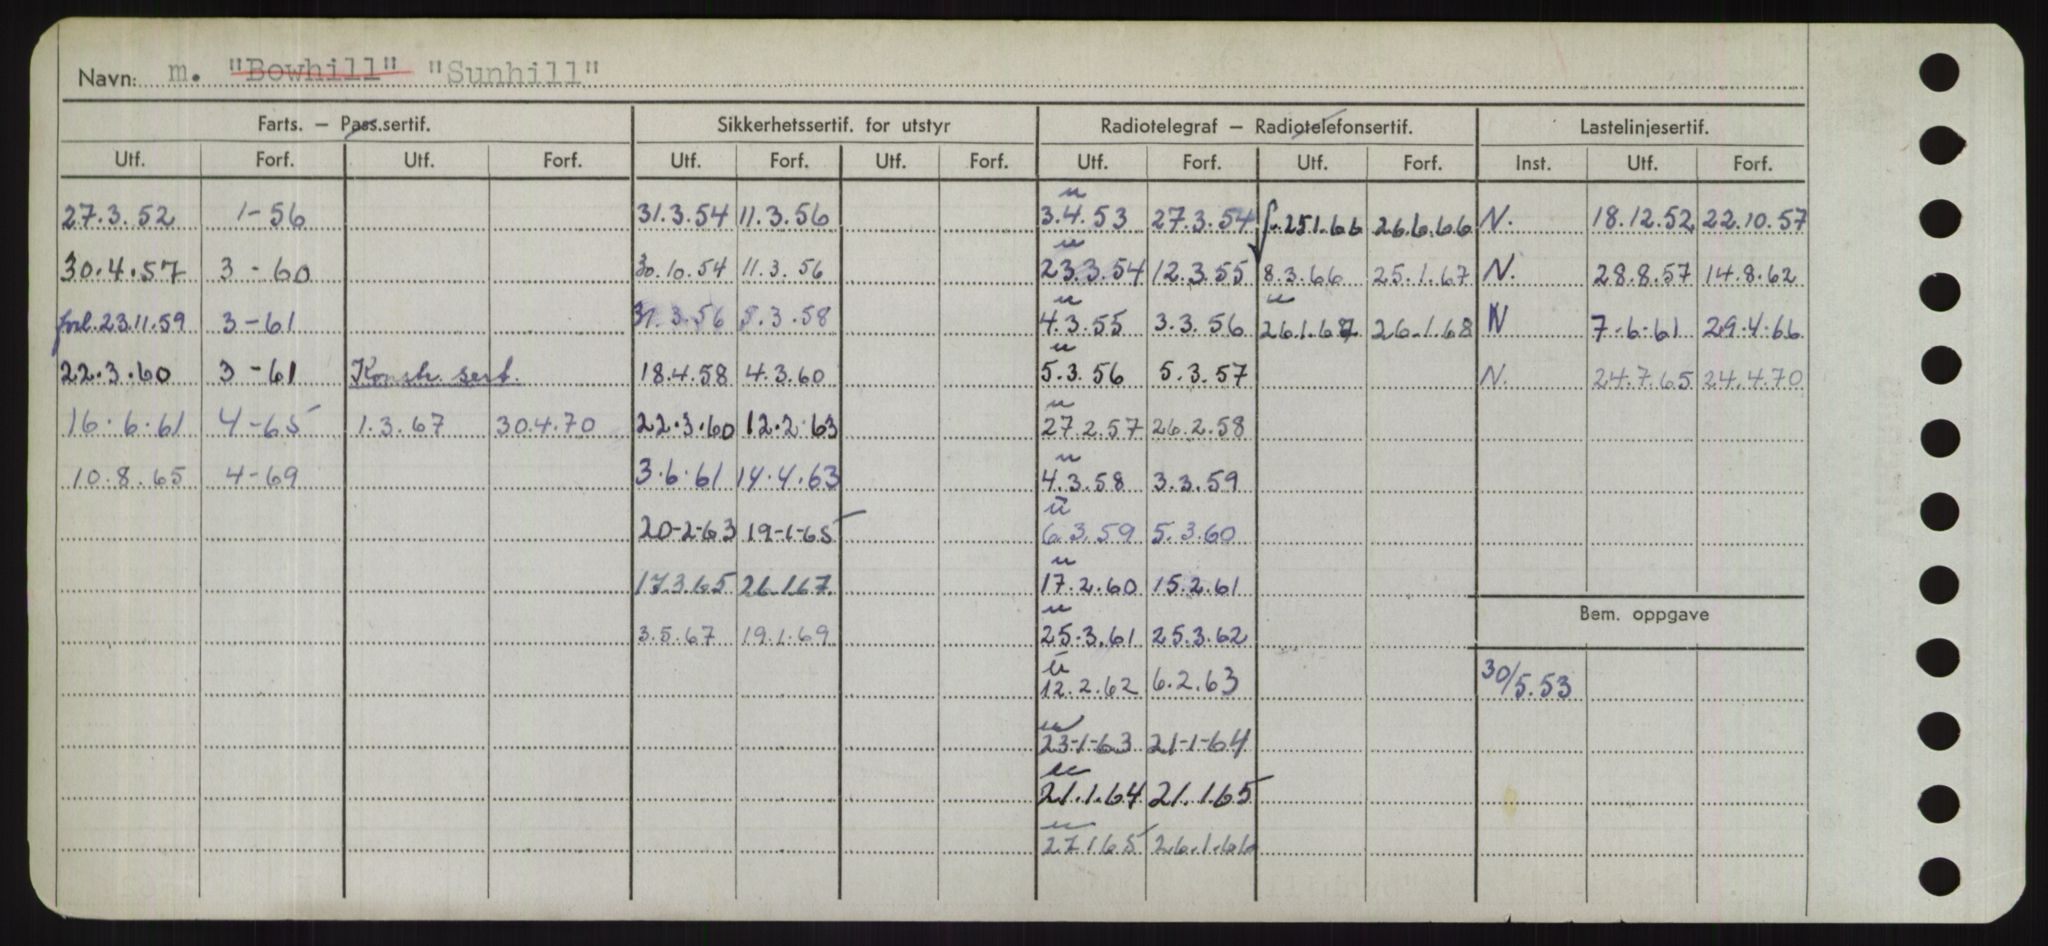 Navn: m. "Bowhill" "Sunhill"
Farts. – Pass.sertif. Sikkerhetssertif. for utstyr Radiotelegraf – Radiotelefonsertif. Lastelinjesertif.
Utf. Forf. Utf. Forf. Utf. Forf. Utf. Forf. Utf. Forf. Utf. Forf. Inst. Utf. Forf.
27.3.52 1-56 31.3.54 11.3.56 u 3.4.53 27.3.54 f. 25.1.66 26.6.66 N. 18.12.52 22.10.57
30.4.57 3-60 30.10.54 11.3.56 u 23.3.54 12.3.55 8.3.66 25.1.67 N. 28.8.57 14.8.62
forl. 23.11.59 3-61 31.3.56 5.3.58 u 4.3.55 3.3.56 u 26.1.67 26.1.68 N 7-6-61 29.4.66
22.3.60 3-61 Konstr. sert. 18.4.58 4.3.60 u 5.3.56 5.3.57 N. 24.7.65 24.4.70
16.6.61 4-65 1.3.67 30.4.70 22.3.60 12.2.63 u 27.2.57 26.2.58
10.8.65 4-69 3.6.61 14.4.63 u 4.3.58 3.3.59
20-2-63 19-1-65 u 6.3.59 5.3.60
17.3.65 26.1.67. u 17.2.60 15.2.61
3.5.67 19.1.69 u 25.3.61 25.3.62
Bem. oppgave
u 12.2.62 6.2.63 30/5.53
u 23-1-63 21-1-64
u 21.1.64 21.1.65
u 27.1.65 26.1.66